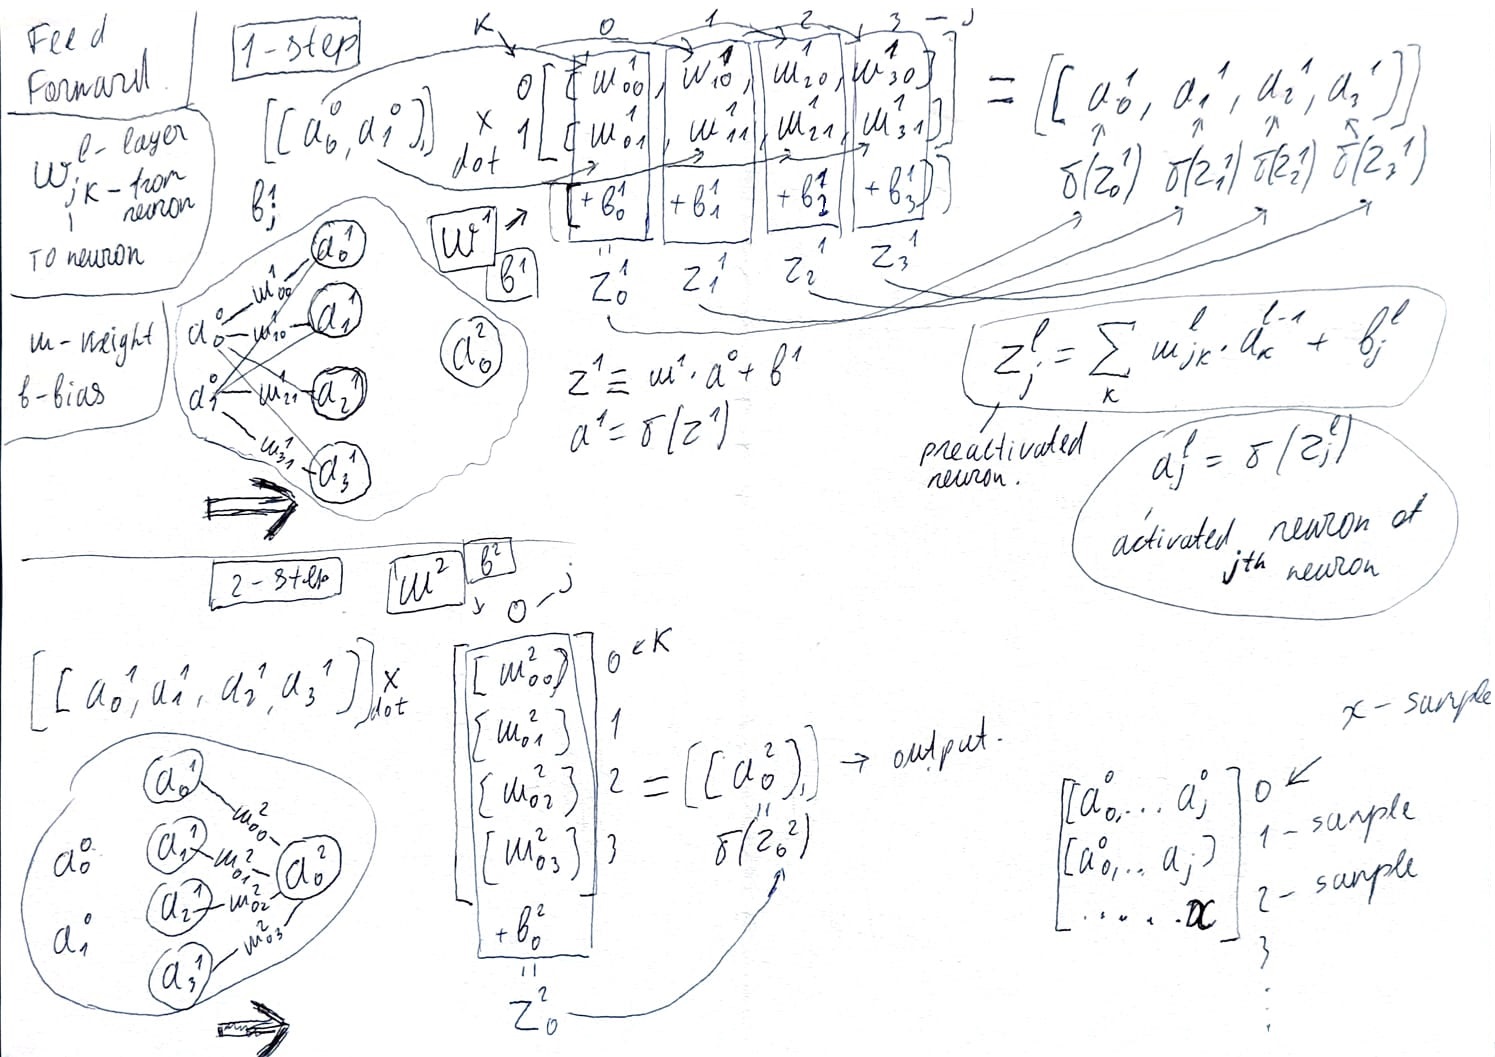 Feed
Forward
1-step
w^l_jk
l - layer
k - from neuron
j
TO neuron
w - weight
b - bias
b^1_j
K
0 1 2 3 - j
[[a^0_0, a^0_1],] × dot
0 [[w^1_00, w^1_10, w^1_20, w^1_30]
1 [w^1_01, w^1_11, w^1_21, w^1_31]]
[[+b^1_0 +b^1_1 +b^1_2 +b^1_3]]
= [[a^1_0, a^1_1, a^1_2, a^1_3]]
σ(z^1_0) σ(z^1_1) σ(z^1_2) σ(z^1_3)
w^1
b^1
z^1_0 z^1_1 z^1_2 z^1_3
a^0_0
a^0_1
w^1_00
w^1_10
w^1_21
w^1_31
a^1_0
a^1_1
a^1_2
a^1_3
a^2_0
z^1 ≡ w^1 · a^0 + b^1
a^1 = σ(z^1)
z^l_j = ∑_k w^l_jk · a^l-1_k + b^l_j
preactivated
neuron.
a^l_j = σ(z^l_j)
activated neuron of
jth neuron
2-step
w^2
b^2
0 - j
[[a^1_0, a^1_1, a^1_2, a^1_3]] × dot
[[w^2_00] 0 ← K
[w^2_01] 1
[w^2_02] 2
[w^2_03]] 3
+b^2_0
=
z^2_0
= [[a^2_0],] → output.
=
σ(z^2_0)
a^0_0
a^0_1
a^1_0
a^1_1
a^1_2
a^1_3
w^2_00
w^2_01
w^2_02
w^2_03
a^2_0
x - sample
[[a^0_0, ... a^0_j] 0
[a^0_0, .. a_j] 1 - sample
..... x] 2 - sample
3